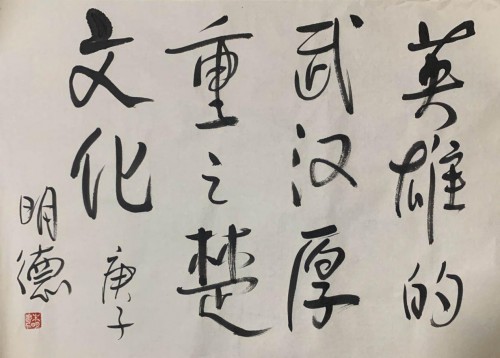 英雄的
武汉厚
重之楚
文化
庚子
明德